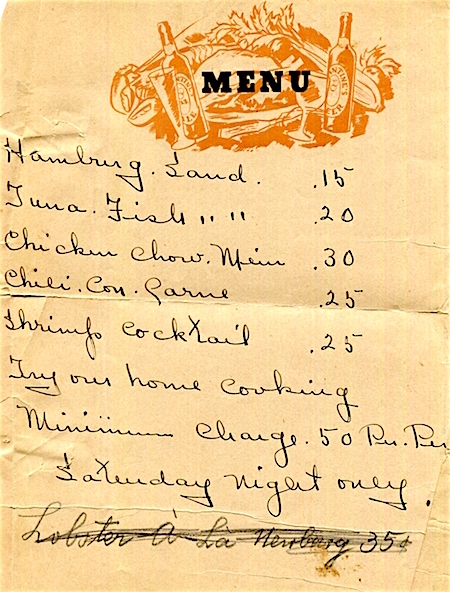 MENU
Hamburg. Sand. .15
Tuna. Fish " " .20
Chicken Chow. Mein .30
Chili. Con. Carne .25
Shrimp Cocktail .25
Try our home cooking
Minimum Charge .50 Per. Per
Saturday night only.
Lobster À La Newburg 35¢